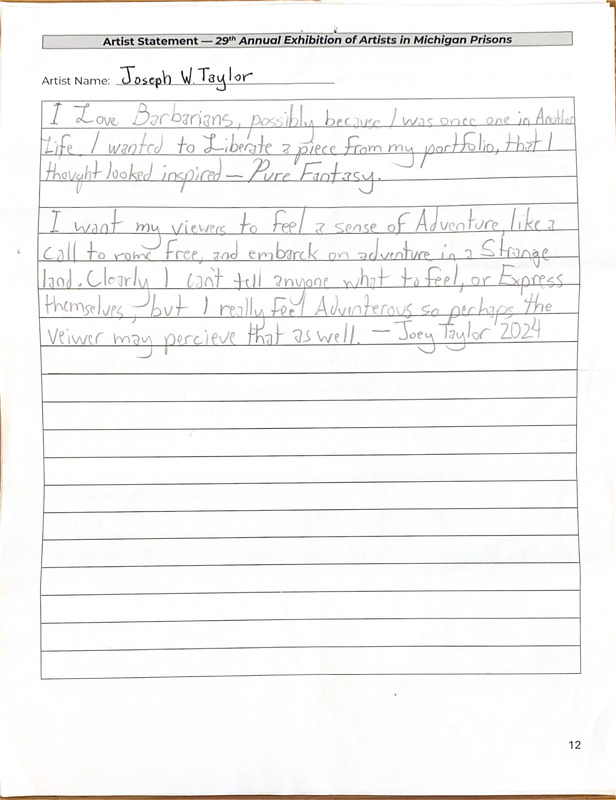 Artist Statement — 29th Annual Exhibition of Artists in Michigan Prisons
Artist Name: Joseph W. Taylor
I Love Barbarians, possibly because I was once one in Another
Life. I wanted to Liberate a piece from my portfolio, that I
thought looked inspired — Pure Fantasy.
I want my viewers to feel a sense of Adventure, like a
call to rome free, and embarck on adventure in a Strange
land. Clearly I can't tell anyone what to feel, or Express
themselves, but I really feel Advinterous so perhaps the
veiwer may percieve that as well. — Joey Taylor 2024
12